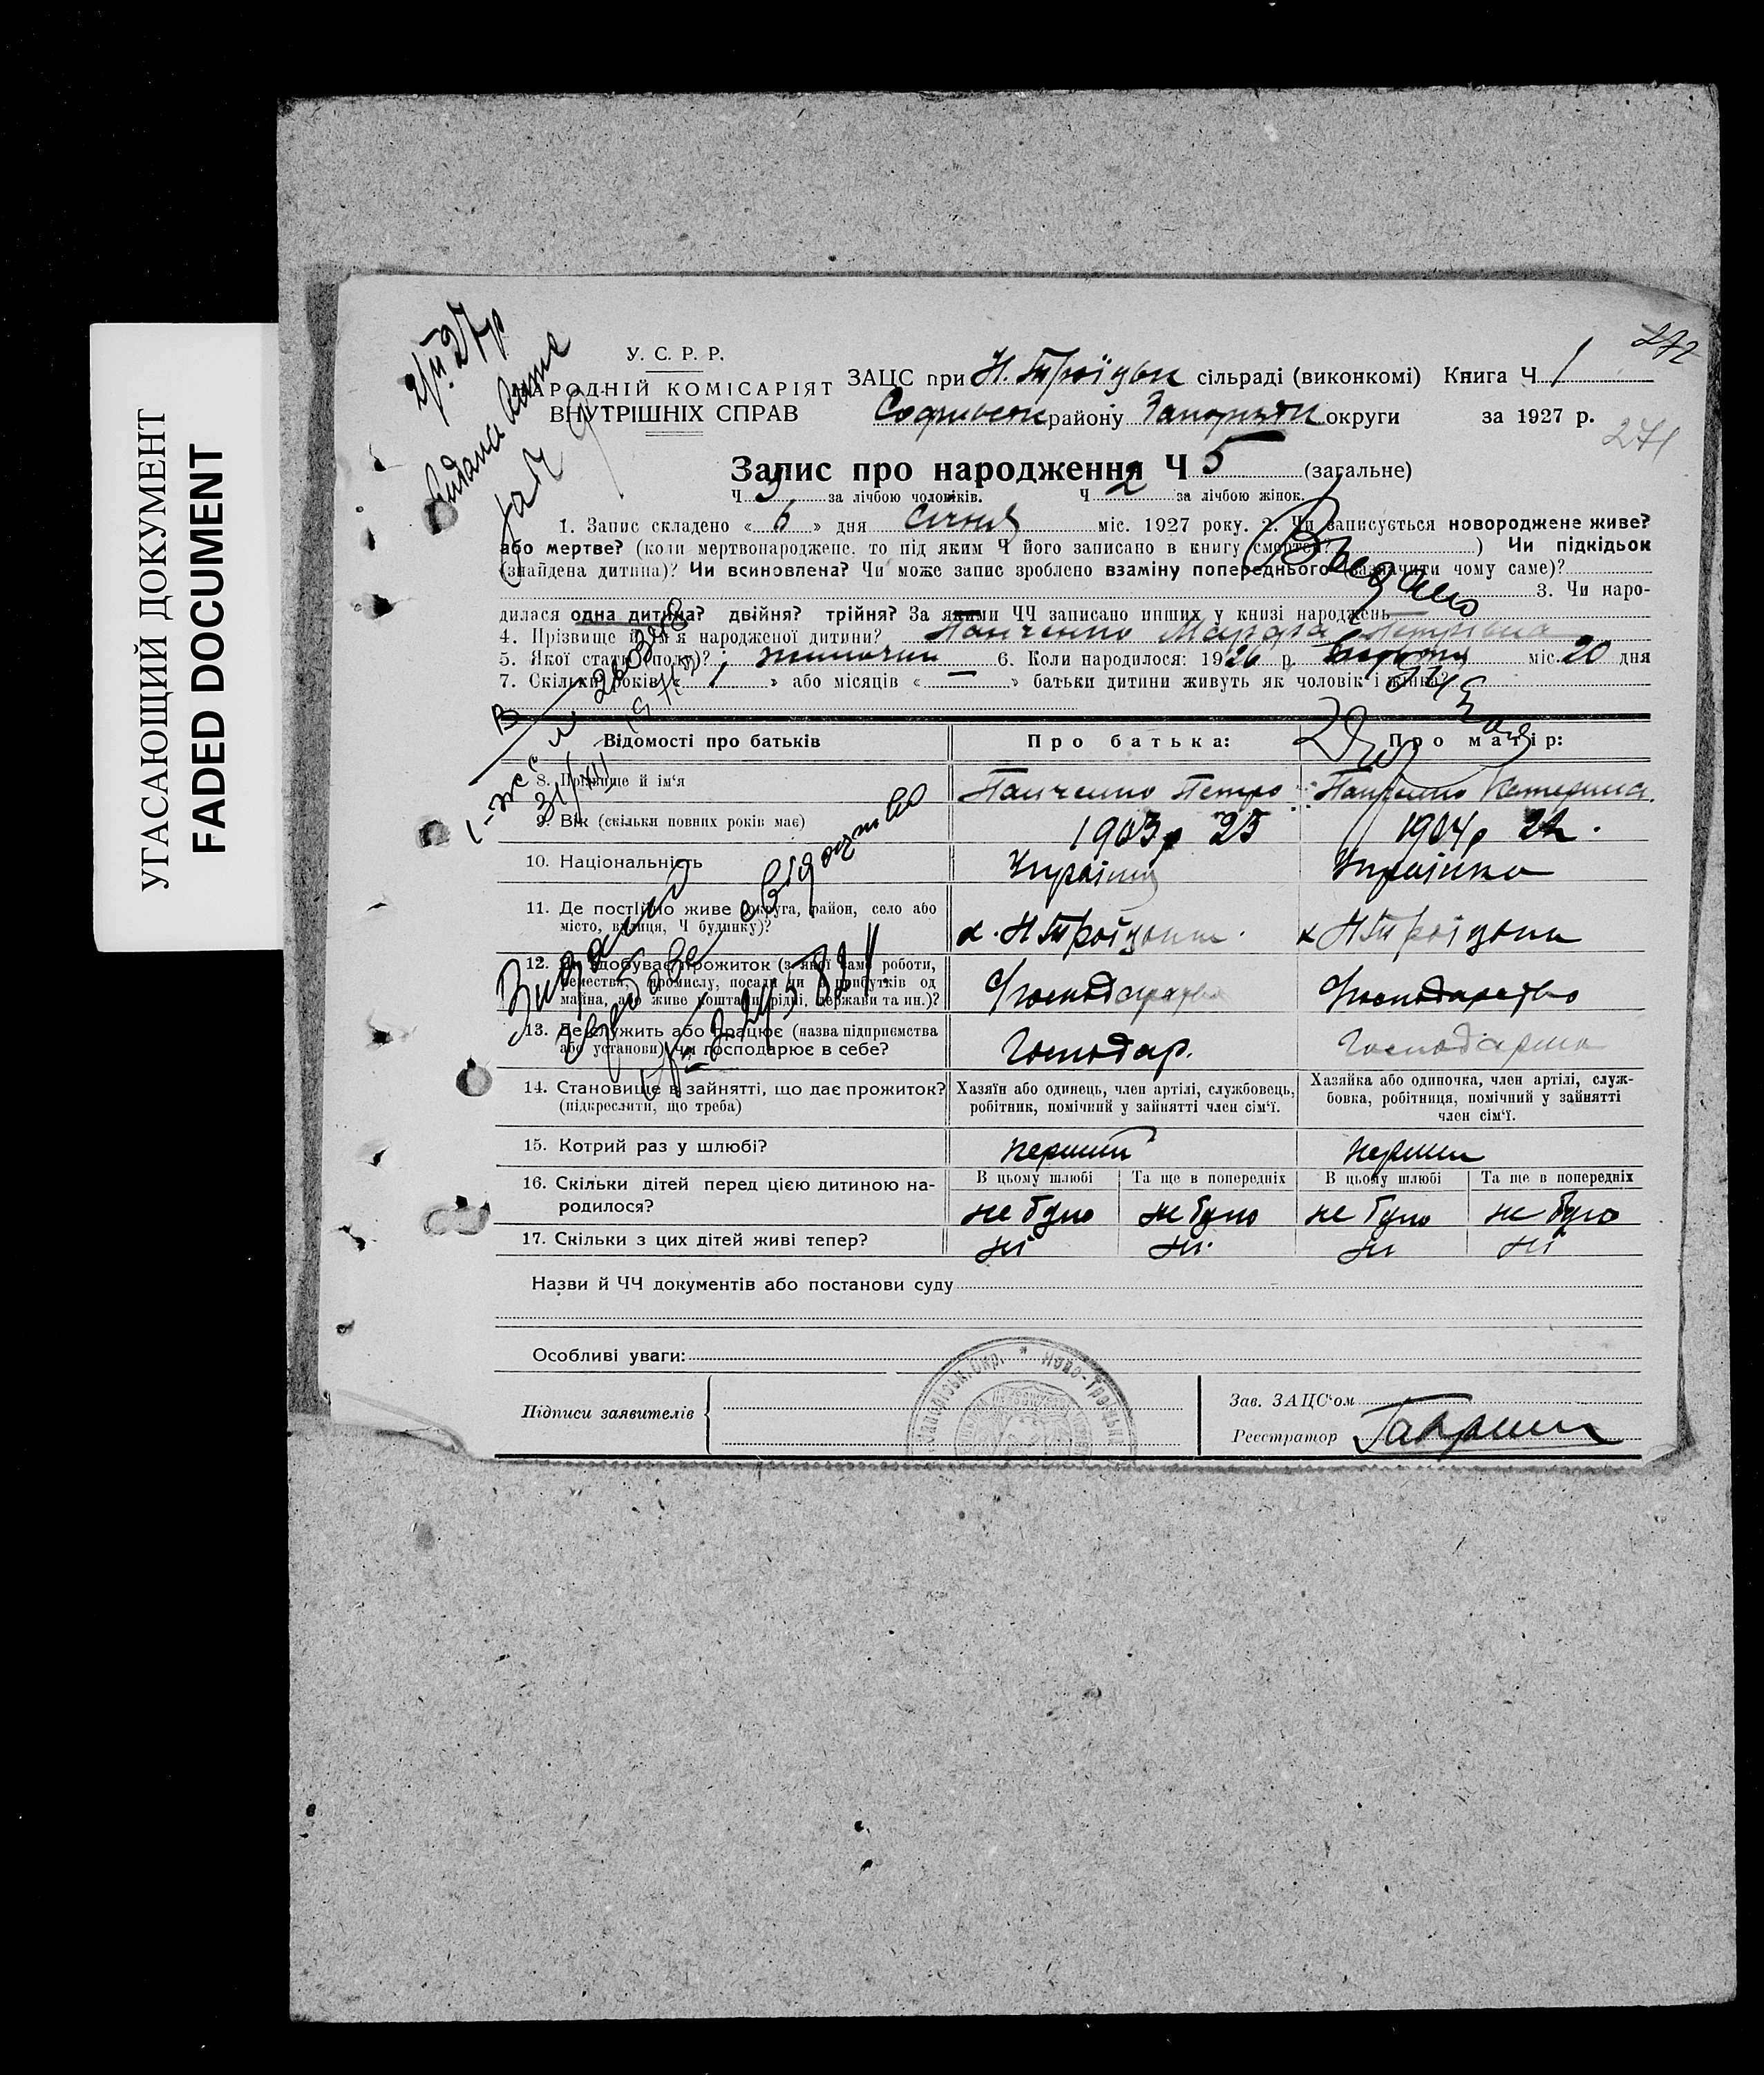 УГАСАЮЩИЙ ДОКУМЕНТ
FADED DOCUMENT
272
271
У. С. Р. Р.
НАРОДНІЙ КОМІСАРІЯТ
ВНУТРІШНІХ СПРАВ
ЗАЦС при Н. Троїцьк сільраді (виконкомі) Книга Ч 1
Софиевськ району Запорізьк округи за 1927 р.
Запис про народження Ч 5 (загальне)
Ч 3 за лічбою чоловіків. Ч 2 за лічбою жінок.
1. Запис складено « 6 » дня Січня міс. 1927 року. 2. Чи записується новороджене живе?
або мертве? (коли мертвонароджене, то під яким Ч його записано в книгу смертей? ) Чи підкідьок
(знайдена дитина)? Чи всиновлена? Чи може запис зроблено взаміну попереднього (зазначити чому саме)?
3. Чи наро-
дилася одна дитина? двійня? трійня? За якими ЧЧ записано инших у книзі народжень —
4. Прізвище й ім'я народженої дитини? Панченко Марфа Петрівна
5. Якої статі (полу)? жиночии 6. Коли народилося: 1926 р. міс. 20 дня
7. Скільки років « 1 » або місяців « — » батьки дитини живуть як чоловік і жінка?
Відомості про батьків Про батька: Про матір:
8. Прізвище й ім'я Панченко Петро Панченко Катерина
9. Вік (скільки повних років має) 1903р 23 1904р 22.
10. Національність Українец Українка
11. Де постійно живе (округа, район, село або
місто, вулиця, Ч будинку)? Н Троїцьки Н Троїцьки
12. Як здобуває прожиток (з якої саме роботи,
ремества, промислу, посади чи з прибутків од
майна, або живе коштами рідні, держави та ин.)? Господарство Господарство
13. Де служить або працює (назва підприємства
або установи) чи господарює в себе? Господар. Господарка
14. Становище в зайнятті, що дає прожиток?
(підкреслити, що треба)
Хазяїн або одинець, член артілі, службовець,
робітник, помічний у зайнятті член сім'ї.
Хазяйка або одиночка, член артілі, служ-
бовка, робітниця, помічний у зайнятті
член сім'ї.
15. Котрий раз у шлюбі? перший перший
16. Скільки дітей перед цією дитиною на-
родилося?
В цьому шлюбі Та ще в попередніх В цьому шлюбі Та ще в попередніх
не було не було не було не було
17. Скільки з цих дітей живі тепер? ні ні ні ні
Назви й ЧЧ документів або постанови суду
Особливі уваги:
Підписи заявителів
Зав. ЗАЦС'ом
Реєстратор
Запорізьк. Окр. * Ново-Троїцьк
Видано
свідоцтво